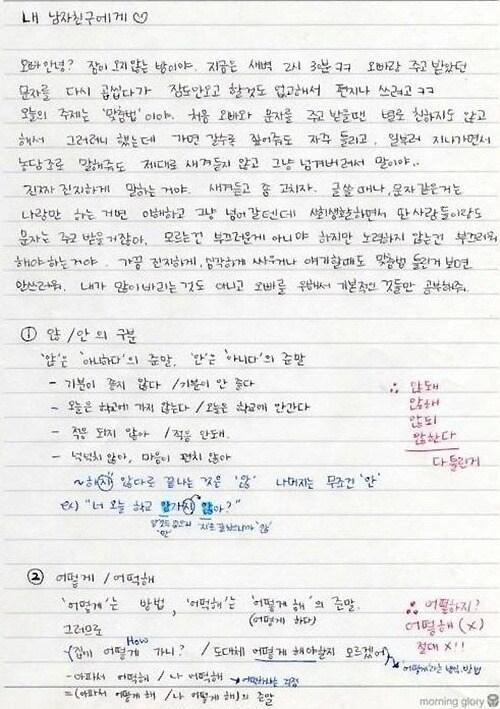 내 남자친구에게 ♡
오빠 안녕? 잠이 오지 않는 밤이야. 지금은 새벽 2시 3분 ㅋㅋ 오빠랑 주고 받았던
문자를 다시 곱씹다가 잠도 안오고 할것도 없고해서 편지나 쓰려고 ㅋㅋ
오늘의 주제는 '맞춤법' 이야. 처음 오빠와 문자를 주고 받을땐 별로 친하지도 않고
해서 그러려니 했는데 가면 갈수록 짚어줘도 자주 틀리고, 일부러 지나가면서
농담조로 말해줘도 제대로 새겨듣지 않고 그냥 넘겨버려서 말이야..
진짜 진지하게 말하는 거야. 새겨듣고 좀 고치자. 글 쓸 때나, 문자같은거는
나랑만 하는 거면 이해하고 그냥 넘어갈텐데 사회생활하면서 딴 사람들이랑도
문자는 주고 받을거잖아. 모르는건 부끄러운게 아니야 하지만 노력하지 않는건 부끄러워
해야 하는거야. 가끔 진지하게, 심각하게 싸우거나 얘기할때도 맞춤법 틀린거 보면
안쓰러워. 내가 많이 바라는 것도 아니고 오빠를 위해서 기본적인 것들만 공부해줘.
① 않 / 안 의 구분
'않'은 '아니하다'의 준말, '안'은 '아니다'의 준말
- 기분이 좋지 않다 / 기분이 안 좋다
- 오늘은 학교에 가지 않는다 / 오늘은 학교에 안간다
- 적응 되지 않아 / 적응 안돼.
- 넉넉치 않아, 마음이 편치 않아
∴ 않돼
않해
않되
않한다
다 틀린거
~해지 않다로 끝나는 것은 '않' 나머지는 무조건 '안'
ex) "너 오늘 학교 안가지 않아?"
'안'
'지'로 끝났으니까 '않'
② 어떻게 / 어떡해
'어떻게'는 방법, '어떡해'는 '어떻게 해'의 준말.
(어떻게 하다)
그러므로
How
(집에 어떻게 가니? / 도대체 어떻게 해야할지 모르겠어)
'어떻게'라는 방식, 방법
- 아파서 어떡해 / 나 어떡해
= (아파서 어떻게 해 / 나 어떻게 해)의 준말
∴ 어떻하지?
어떻해 (X)
절대 X!!
morning glory